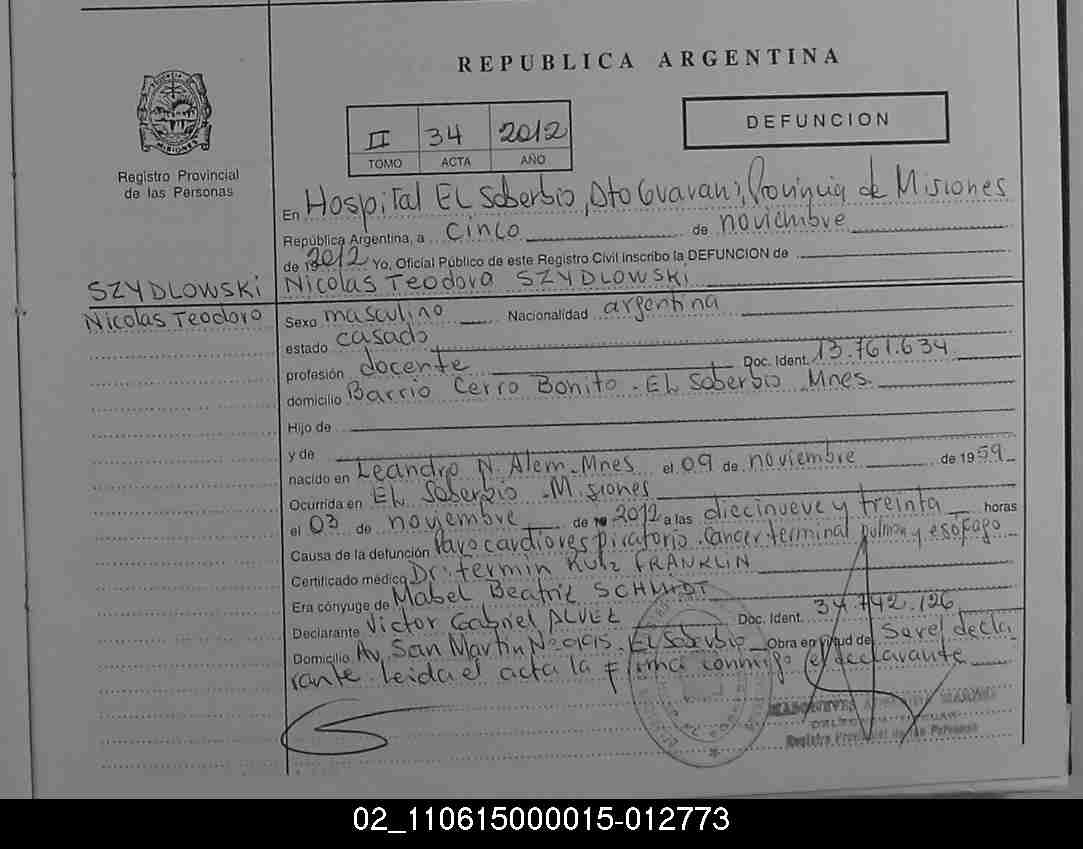 REPUBLICA ARGENTINA
MISIONES
Registro Provincial
de las Personas
II 34 2012
TOMO ACTA AÑO
DEFUNCION
En Hospital El Soberbio, Dto Guarani, Provincia de Misiones
República Argentina, a cinco de noviembre
de 19 2012 Yo, Oficial Público de este Registro Civil inscribo la DEFUNCION de
SZYDLOWSKI
Nicolas Teodoro
Nicolas Teodoro SZYDLOWSKI
Sexo masculino Nacionalidad argentina
estado casado
profesión docente Doc. Ident. 13.761.634
domicilio Barrio Cerro Bonito - El Soberbio Mnes.
Hijo de
y de
nacido en Leandro N. Alem - Mnes el 09 de noviembre de 1959
Ocurrida en El Soberbio - Misiones
el 03 de noviembre de 2012 a las diecinueve y treinta horas
Causa de la defunción Paro cardiorespiratorio. Cancer terminal pulmon y esofago
Certificado médico Dr. Fermin Ruiz FRANKLIN
Era cónyuge de Mabel Beatriz SCHMIDT
Declarante Victor Gabriel ALVEZ Doc. Ident. 34.742.126
Domicilio Av. San Martin El Soberbio Obra en virtud de Ser el decla
rante. Leida el acta la firma conmigo el declarante
Registro Provincial de las Personas
02_110615000015-012773